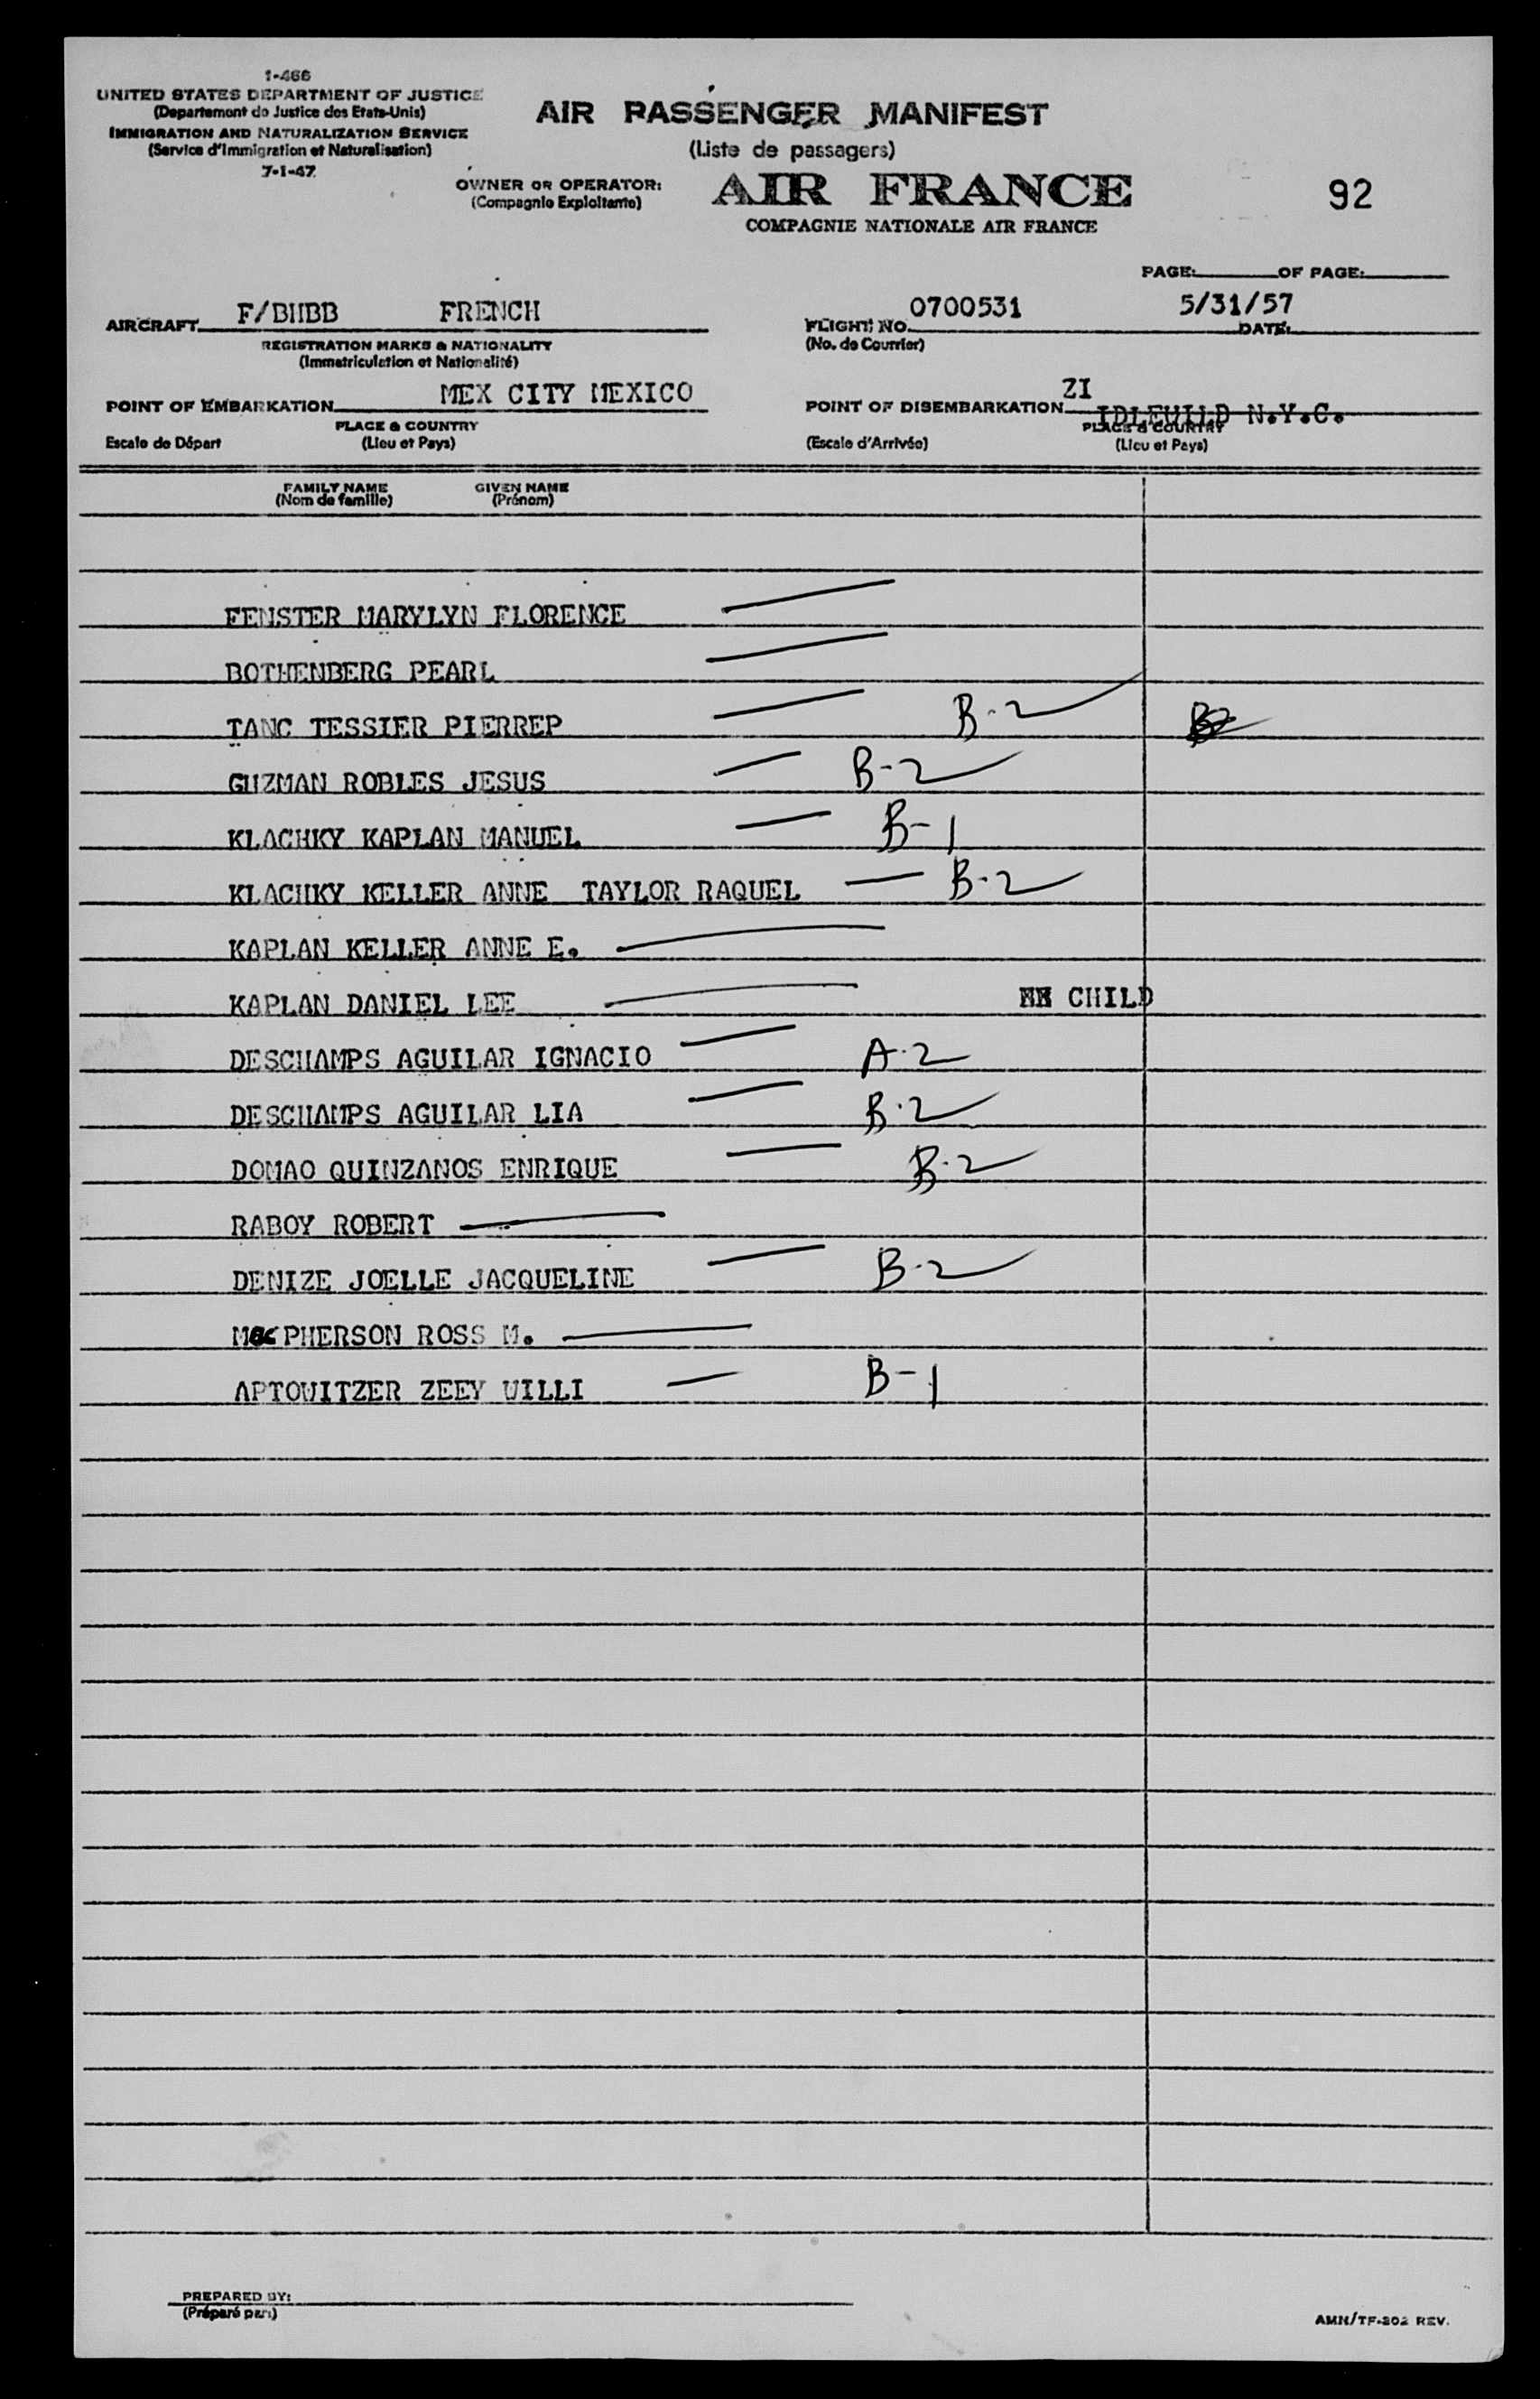 I-466
UNITED STATES DEPARTMENT OF JUSTICE
(Departement de Justice des Etats-Unis)
IMMIGRATION AND NATURALIZATION SERVICE
(Service d'Immigration et Naturalisation)
7-1-47
AIR PASSENGER MANIFEST
(Liste de passagers)
OWNER OR OPERATOR:
(Compagnie Exploitante)
AIR FRANCE
COMPAGNIE NATIONALE AIR FRANCE
92
PAGE: OF PAGE:
AIRCRAFT F/BHBB FRENCH
REGISTRATION MARKS & NATIONALITY
(Immatriculation et Nationalité)
FLIGHT NO. 0700531 5/31/57 DATE:
(No. de Courrier)
POINT OF EMBARKATION MEX CITY MEXICO
PLACE & COUNTRY
Escale de Départ (Lieu et Pays)
ZI
POINT OF DISEMBARKATION IDLEWILD N.Y.C.
PLACE & COUNTRY
(Escale d'Arrivée) (Lieu et Pays)
FAMILY NAME GIVEN NAME
(Nom de famille) (Prénom)
FENSTER MARYLYN FLORENCE
BOTHENBERG PEARL
TANC TESSIER PIERREP B-2 B2
GUZMAN ROBLES JESUS B-2
KLACHKY KAPLAN MANUEL B-1
KLACHKY KELLER ANNE TAYLOR RAQUEL B-2
KAPLAN KELLER ANNE E.
KAPLAN DANIEL LEE CHILD
DESCHAMPS AGUILAR IGNACIO A-2
DESCHAMPS AGUILAR LIA B-2
DOMAO QUINZANOS ENRIQUE B-2
RABOY ROBERT
DENIZE JOELLE JACQUELINE B-2
MacPHERSON ROSS M.
APTOWITZER ZEEY WILLI B-1
PREPARED BY:
(Préparé par:)
AMN/TF-202 REV.